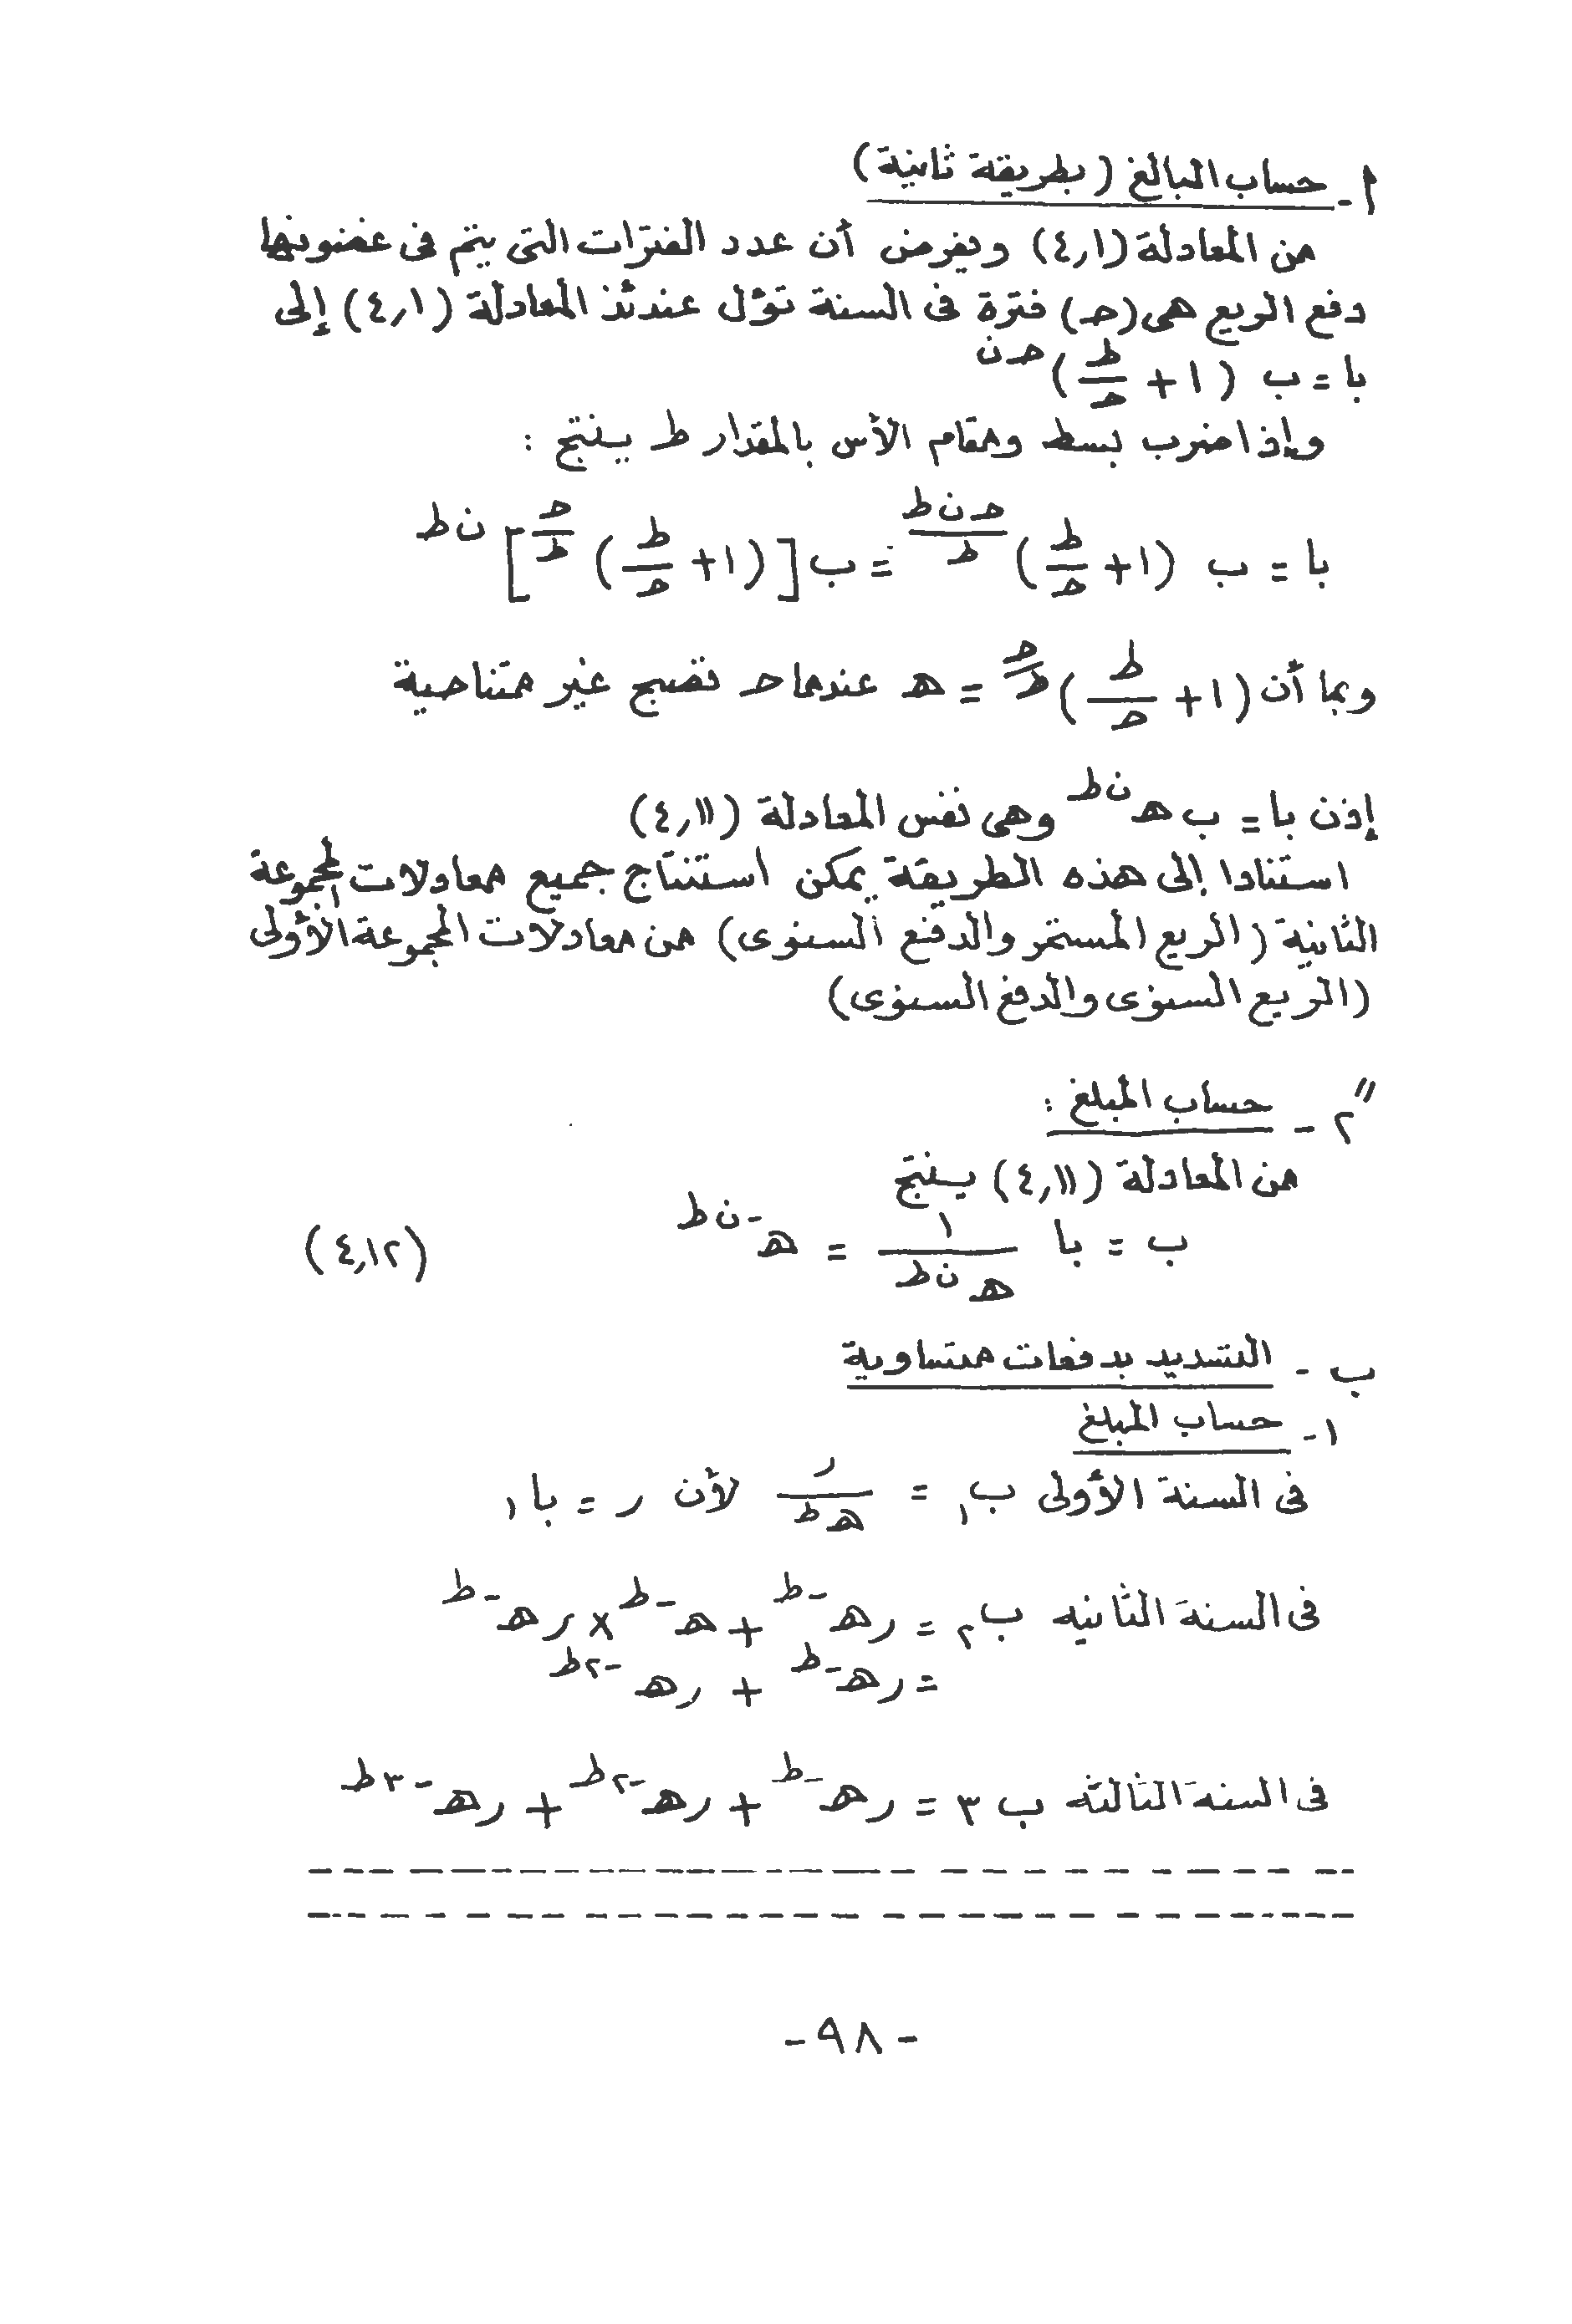 أ- حساب المبالغ (بطريقة ثانية)
من المعادلة (٤,١) وبفرض أن عدد الفترات التى يتم فى غضونها
دفع الريع هى (حـ) فترة فى السنة تؤل عندئذ المعادلة (٤,١) إلى
با = ب (١ + ط/حـ)^(حـ ن)
وإذا ضرب بسط ومقام الأس بالمقدار ط ينتج :
با = ب (١ + ط/حـ)^(حـ ن ط/ط) = ب [(١ + ط/حـ)^(حـ/ط)]^(ن ط)
وبما أن (١ + ط/حـ)^(حـ/ط) = هـ عندما حـ تصبح غير متناهية
إذن با = ب هـ^(ن ط) وهى نفس المعادلة (٤,١١)
استنادا إلى هذه الطريقة يمكن استنتاج جميع معادلات المجموعة
الثانية (الريع المستمر والدفع السنوى) من معادلات المجموعة الأولى
(الريع السنوى والدفع السنوى)
٢" - حساب المبلغ :
من المعادلة (٤,١١) ينتج
ب = با ١/هـ^(ن ط) = هـ^(-ن ط) (٤,١٢)
ب - التسديد بدفعات متساوية
١- حساب المبلغ
فى السنة الأولى ب١ = ر/هـ^ط لأن ر = با١
فى السنة الثانيه ب٢ = ر هـ^(-ط) + هـ^(-ط) × ر هـ^(-ط)
= ر هـ^(-ط) + ر هـ^(-٢ط)
فى السنة الثالثه ب ٣ = ر هـ^(-ط) + ر هـ^(-٢ط) + ر هـ^(-٣ط)
- ٩٨ -